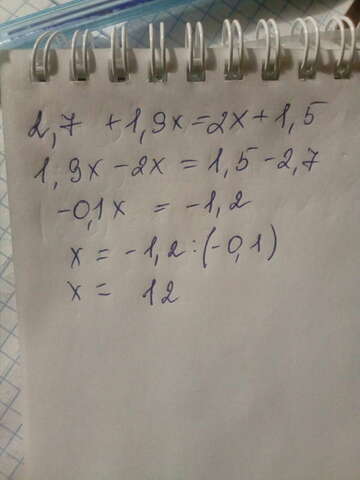 2,7 +1,9x=2x+1,5
1,9x-2x=1,5-2,7
-0,1x = -1,2
x = -1,2:(-0,1)
x = 12